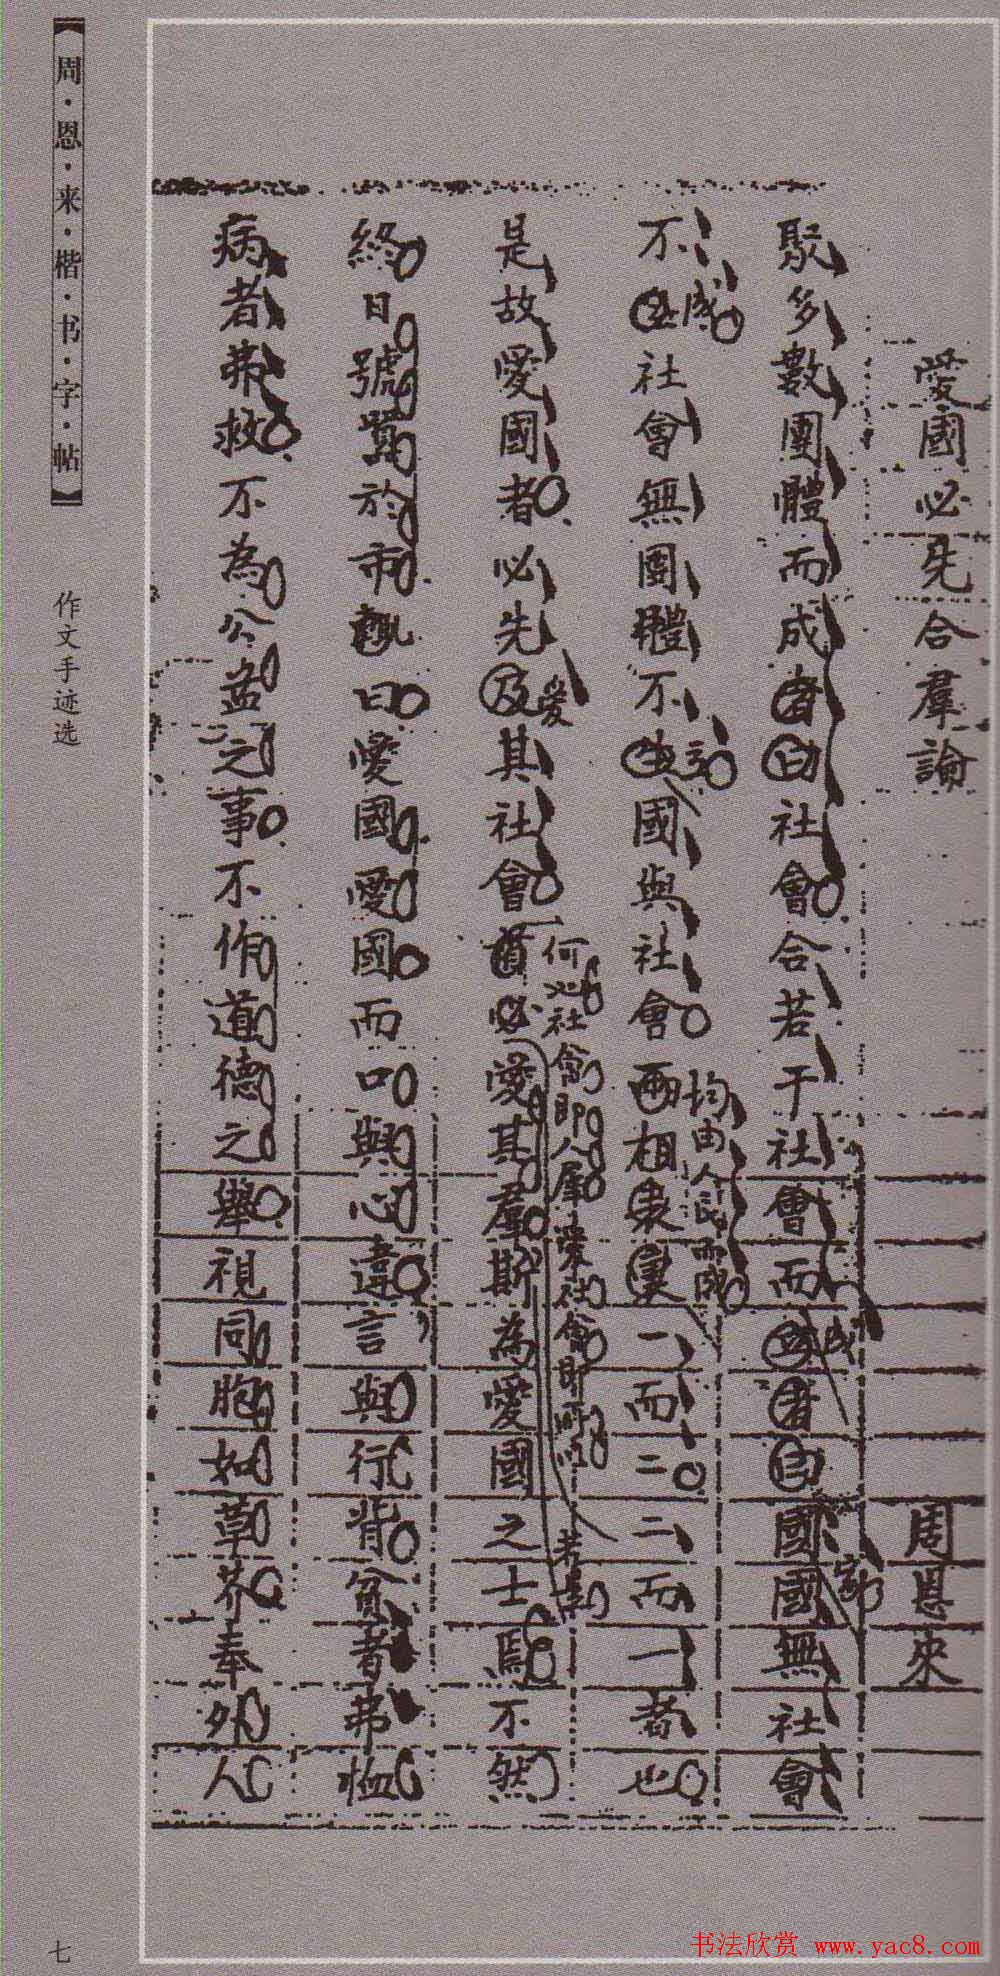 愛國必先合羣論
周恩來
聚多數團體而成者曰社會合若干社會而者曰國國無社會
成
家
不社會無團體不生國與社會相表裏一而二二而一者也
成
立
均由人民而成
是故愛國者必先及其社會首必愛其羣斯為愛國之士焉不然
愛
何也社會即人羣愛社會即所以
若是
終日號於市曰愛國愛國而口與心違言與行背貧者弗恤
病者弗救不為公益之事不作道德之舉視同胞如草芥奉外人
【周·恩·来·楷·书·字·帖】
作文手迹选
七
书法欣赏 www.yac8.com